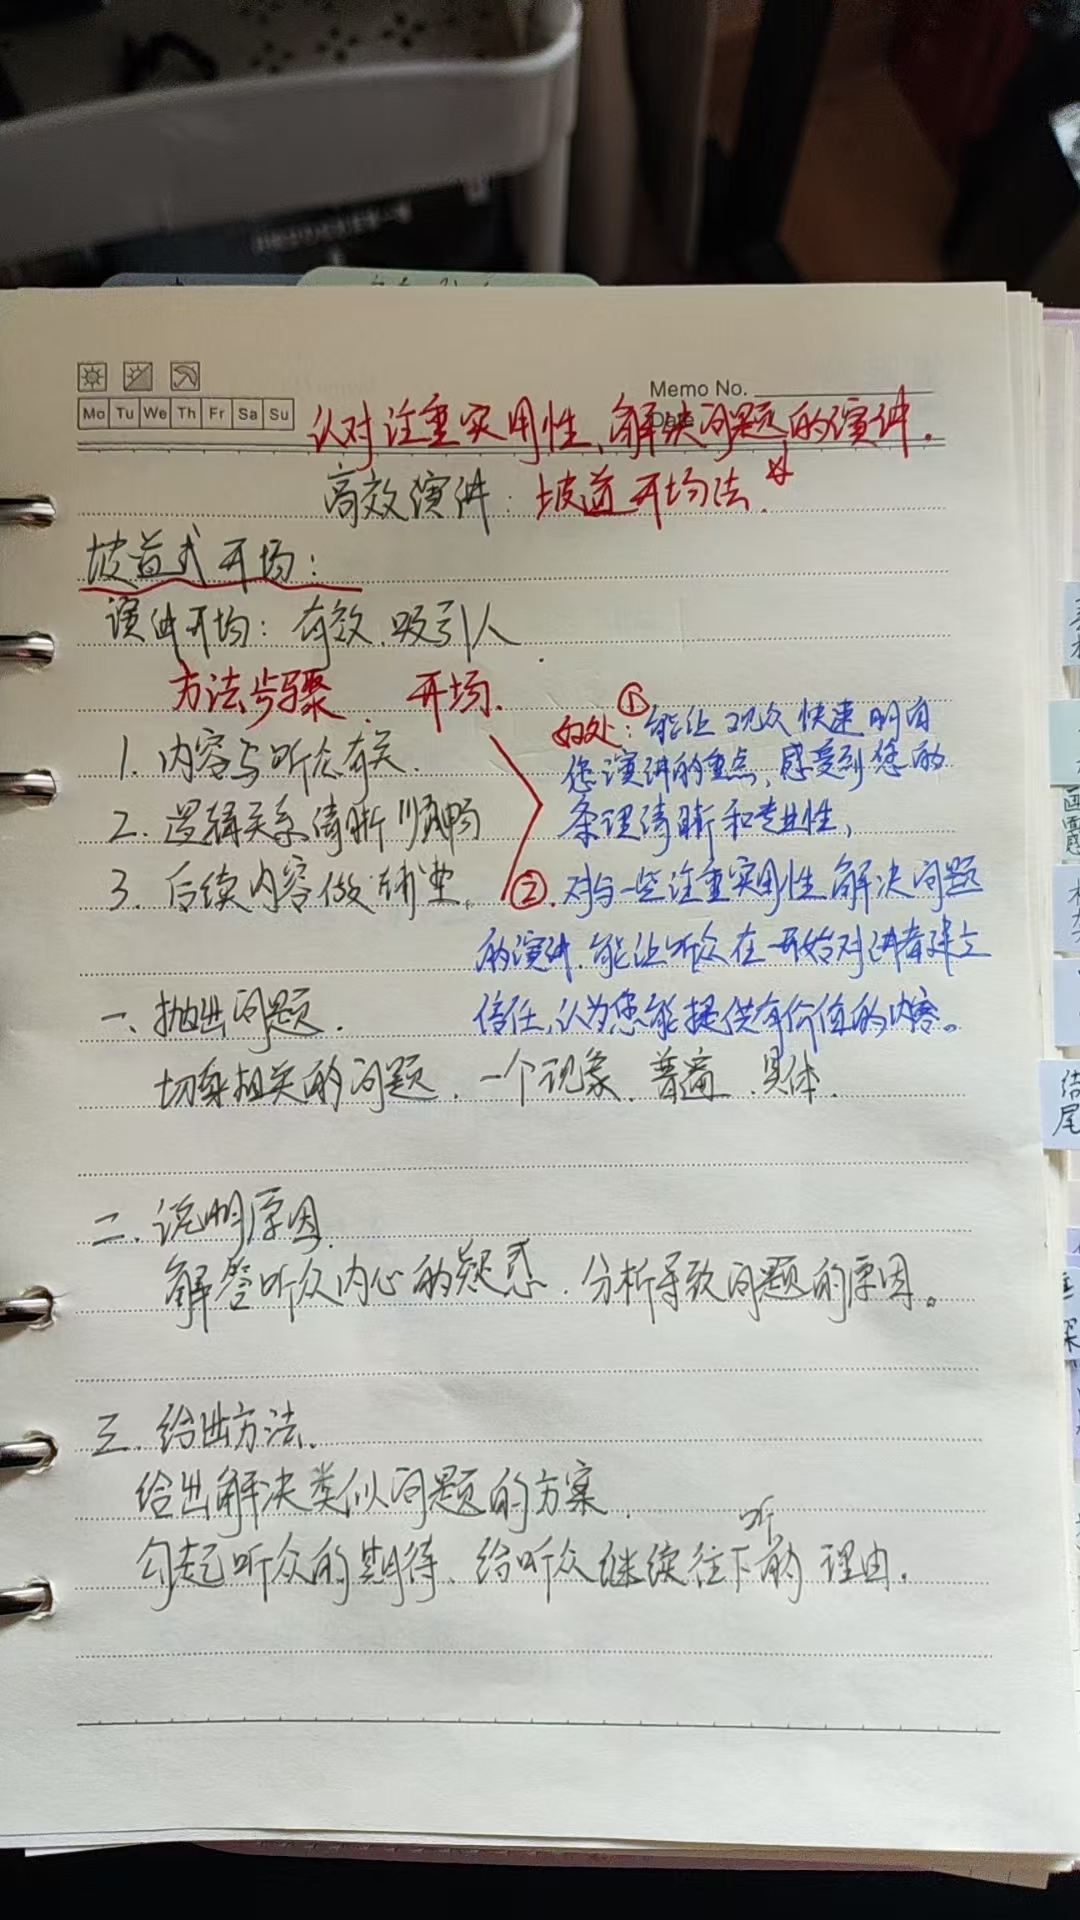 Memo No.
Date
Mo Tu We Th Fr Sa Su
认对注重实用性、解决问题的演讲.
高效演讲: 坡道开场法.
坡道式开场:
演讲开场: 有效.吸引人.
方法步骤. 开场.
1. 内容与听众有关.
2. 逻辑关系清晰顺畅
3. 后续内容做铺垫.
好处: ①能让观众快速明白
您演讲的重点,感受到您的
条理清晰和专业性,
②.对与一些注重实用性.解决问题
的演讲.能让听众在一开始对讲者建立
信任,认为您能提供有价值的内容。
一、抛出问题.
切身相关的问题. 一个现象.普遍.具体.
二.说明原因.
解答听众内心的疑惑.分析导致问题的原因。
三.给出方法.
给出解决类似问题的方案.
勾起听众的期待.给听众继续往下听的理由.
结尾